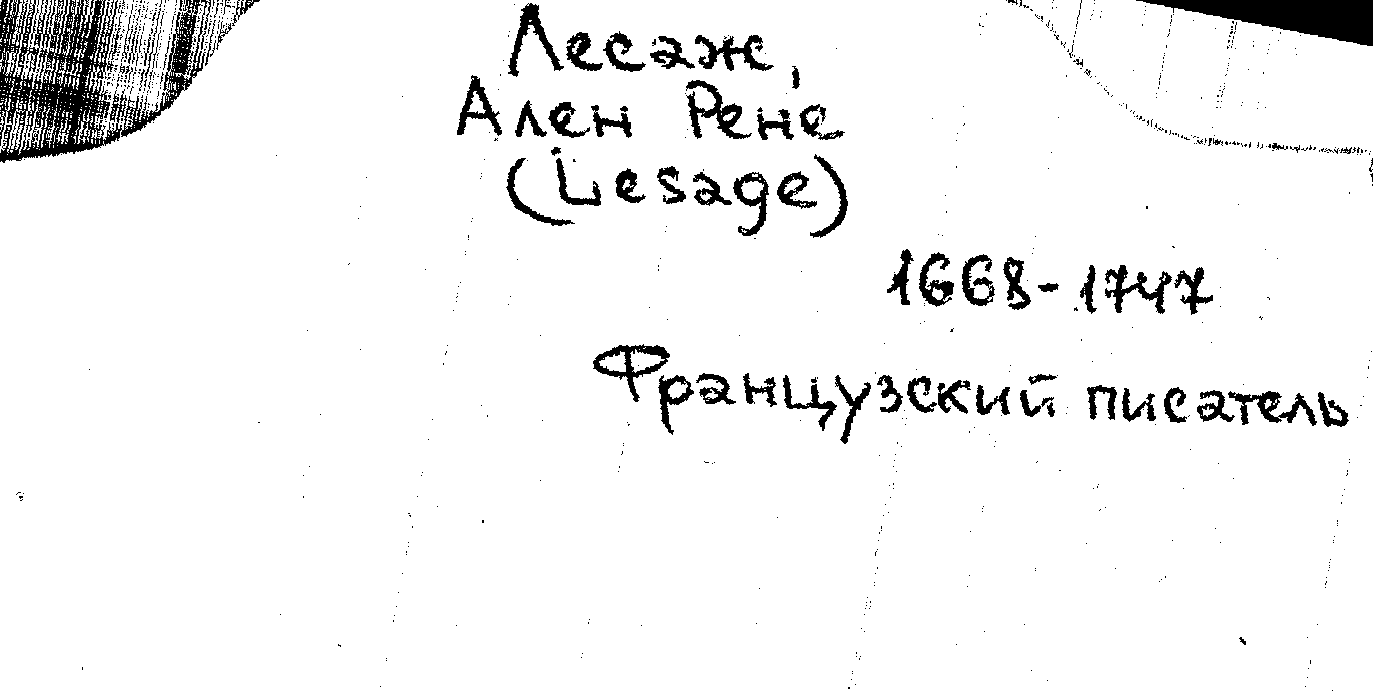 Лесаж,
Ален Рене
(Lesage)
1668-1747
Французский писатель